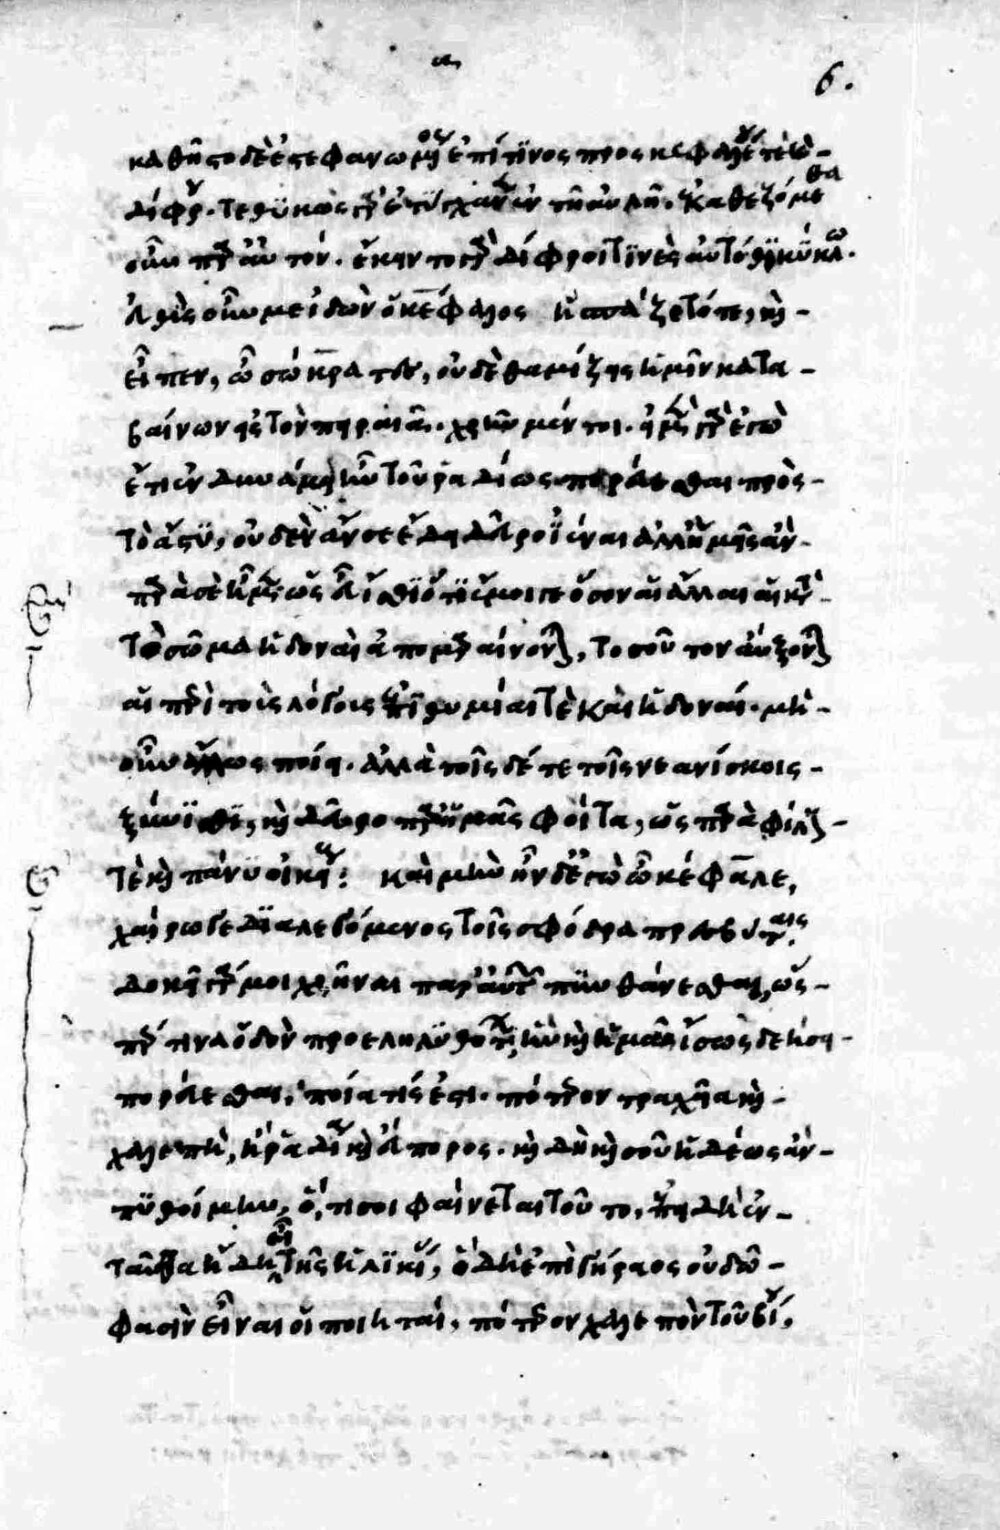 α
6.
καθῆστο δὲ ἐστεφανωμένος ἐπί τινος προσκεφαλαίου τὲ καὶ
δίφρου. τεθυκὼς γὰρ ἐτύγχανεν ἐν τῆ αὐλῆ. ἐκαθεζόμεθα
οὖν παρ' αὐτόν. ἔκειντο γὰρ δίφροι τινὲς αὐτόθι κύκλω.
εὐθὺς οὖν με ἰδὼν ὁ κέφαλος ἠσπάζετό τε, καὶ
εἶπεν, ὦ σώκρατες, οὐδὲ θαμίζεις ἡμῖν κατα
βαίνων εἰς τὸν πειραιᾶ. χρῆν μέν τοι. εἰ μὲν γὰρ ἐγὼ
ἔτι ἐν δυνάμει ἦν τοῦ ῥαδίως πορεύεσθαι πρὸς
τὸ ἄστυ, οὐδὲν ἄν σε ἔδει δεῦρο ἰέναι ἀλλ' ἡμεῖς ἂν
παρὰ σὲ ἦμεν ὡς εὖ ἴσθι ὅτι ἔμοιγε ὅσον αἱ ἄλλαι αἱ κατὰ
τὸ σῶμα ἡδοναὶ ἀπομαραίνονται, τοσοῦτον αὔξονται
αἱ περὶ τοὺς λόγους ἐπιθυμίαι τὲ καὶ ἡδοναί. μὴ
οὖν ἄλλως ποίει. ἀλλὰ τοῖσδέ τε τοῖς νεανίσκοις
ξύνισθι, καὶ δεῦρο παρ' ἡμᾶς φοίτα, ὡς παρὰ φίλους
τὲ καὶ πάνυ οἰκείους: καὶ μὴν ἦν δ' ἐγὼ ὦ κέφαλε,
χαίρω γε διαλεγόμενος τοῖς σφόδρα πρεσβύταις.
δοκεῖ γάρ μοι χρῆναι παρ' αὐτῶν πυνθάνεσθαι, ὥς
περ τινὰ ὁδὸν προεληλυθότων, ἣν καὶ ἡμᾶς ἴσως δεήσει
πορεύεσθαι, ποία τίς ἐστι. πότερον τραχεῖα καὶ
χαλεπὴ, ἢ ῥᾳδία καὶ εὔπορος. καὶ δὴ καὶ σοῦ ἡδέως ἂν
πυθοίμην, ὅ,τι σοι φαίνεται τοῦτο, ἐπειδὴ ἐν
ταῦθα ἤδη εἶ τῆς ἡλικίας, ὃ δὴ ἐπὶ γήραος οὐδῶ
φασὶν εἶναι οἱ ποιηταί, πότερον χαλεπὸν τοῦ βίου,